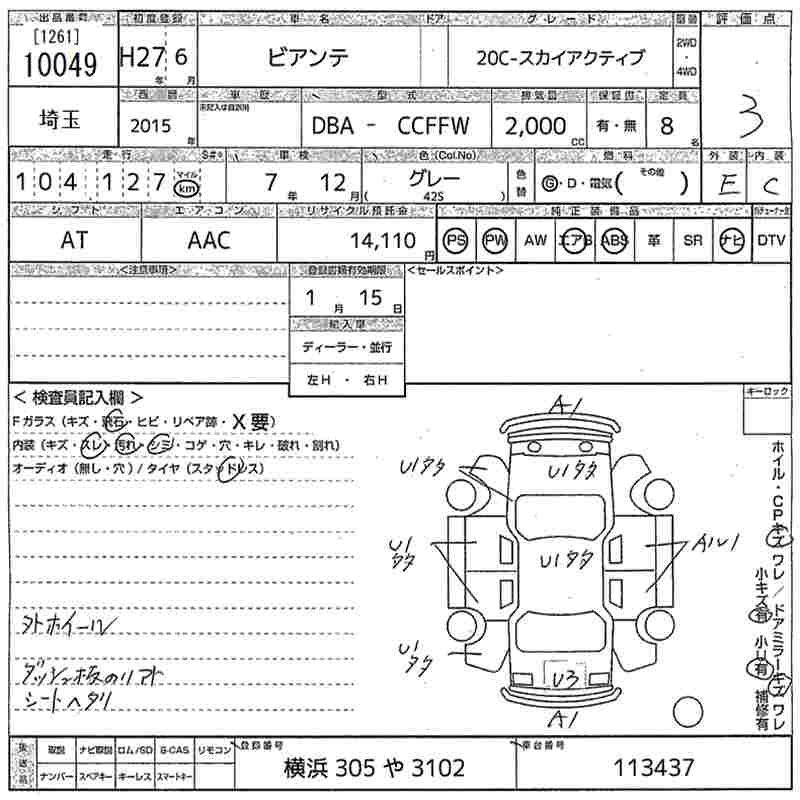 出品番号 初度登録 車名 ドア グレード 駆動 評価点
[1261]
10049 H27 6 ビアンテ 20C-スカイアクティブ 2WD・4WD 3
年 月
西暦 車歴 型式 排気量 保証書 定員
未記入は自家用
埼玉 2015 年 DBA - CCFFW 2,000 CC 有・無 8 名
走行 S#* 車検 色(Col.No) 燃料 外装 内装
104,127 マイル km 7 年 12 月 グレー ( 42S ) 色替 G・D・電気( その他 ) E C
シフト エアコン リサイクル預託金 純正装備品
AT AAC 14,110 円 PS PW AW エアB ABS 革 SR ナビ DTV
<注意事項> 登録書類有効期限 <セールスポイント>
1 月 15 日
輸入車
ディーラー・並行
左H ・ 右H
< 検査員記入欄 > キーロック
Fガラス (キズ・飛石・ヒビ・リペア跡・X要)
内装 (キズ・スレ・汚れ・シミ・コゲ・穴・キレ・破れ・割れ)
オーディオ (無し・穴) / タイヤ (スタッドレス)
A1
U1タタ U1タタ
U1タタ U1タタ A1U1
U1タタ
U3
A1
ホイル・CPキズ ワレ / ドアミラーキズ ワレ
小キズ有 小U有 補修有
外ホイール
シートヘタリ
後送品 取説 ナビ取説 ロム/SD G-CAS リモコン 登録番号 車台番号
ナンバー スペアキー キーレス スマートキー 横浜 305 や 3102 113437